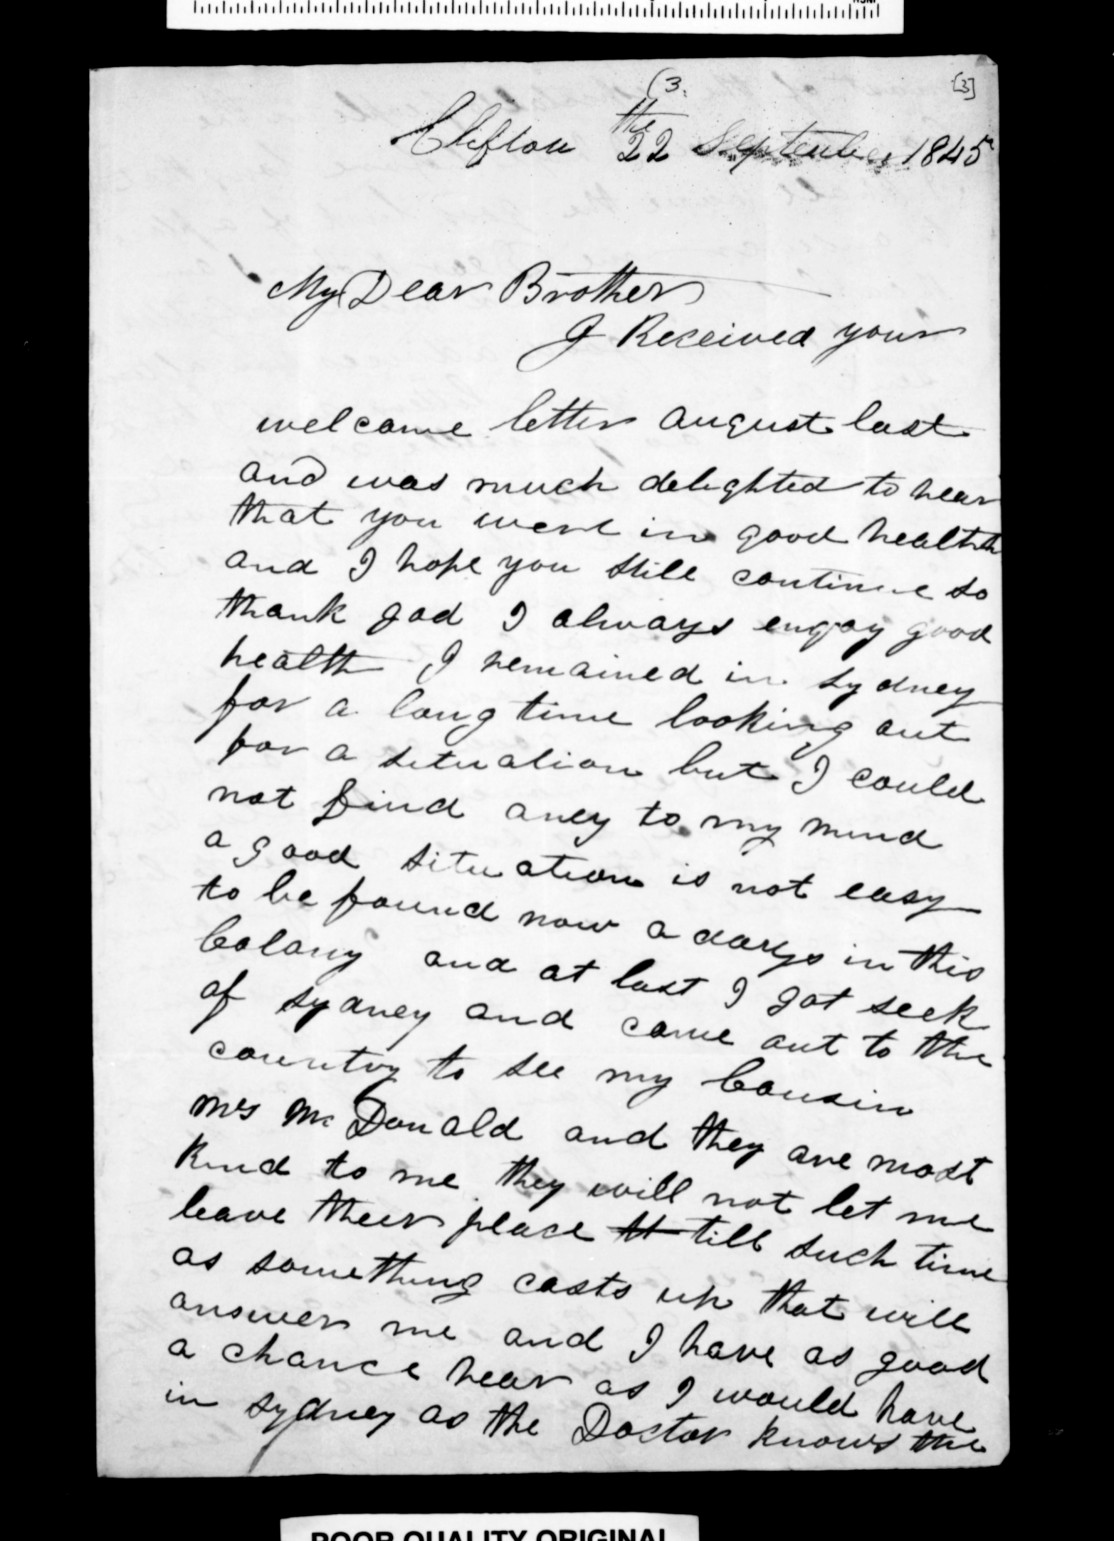 (3.
[3]
Clifton the 22 September 1845
My Dear Brother
I Received your
welcome letter august last
and was much delighted to hear
that you were in good health
and I hope you still continue so
thank god I always enjoy good
health I remained in sydney
for a long time looking out
for a situation but I could
not find aney to my mind
a good situation is not easy
to be found now a days in this
Colony and at last I got seek
of sydney and came out to the
country to see my Cousin
Mrs McDonald and they are most
kind to me they will not let me
leave theer place tt till such time
as something casts up that will
answer me and I have as good
a chance hear as I would have
in sydney as the Doctor knows the
POOR QUALITY ORIGINAL